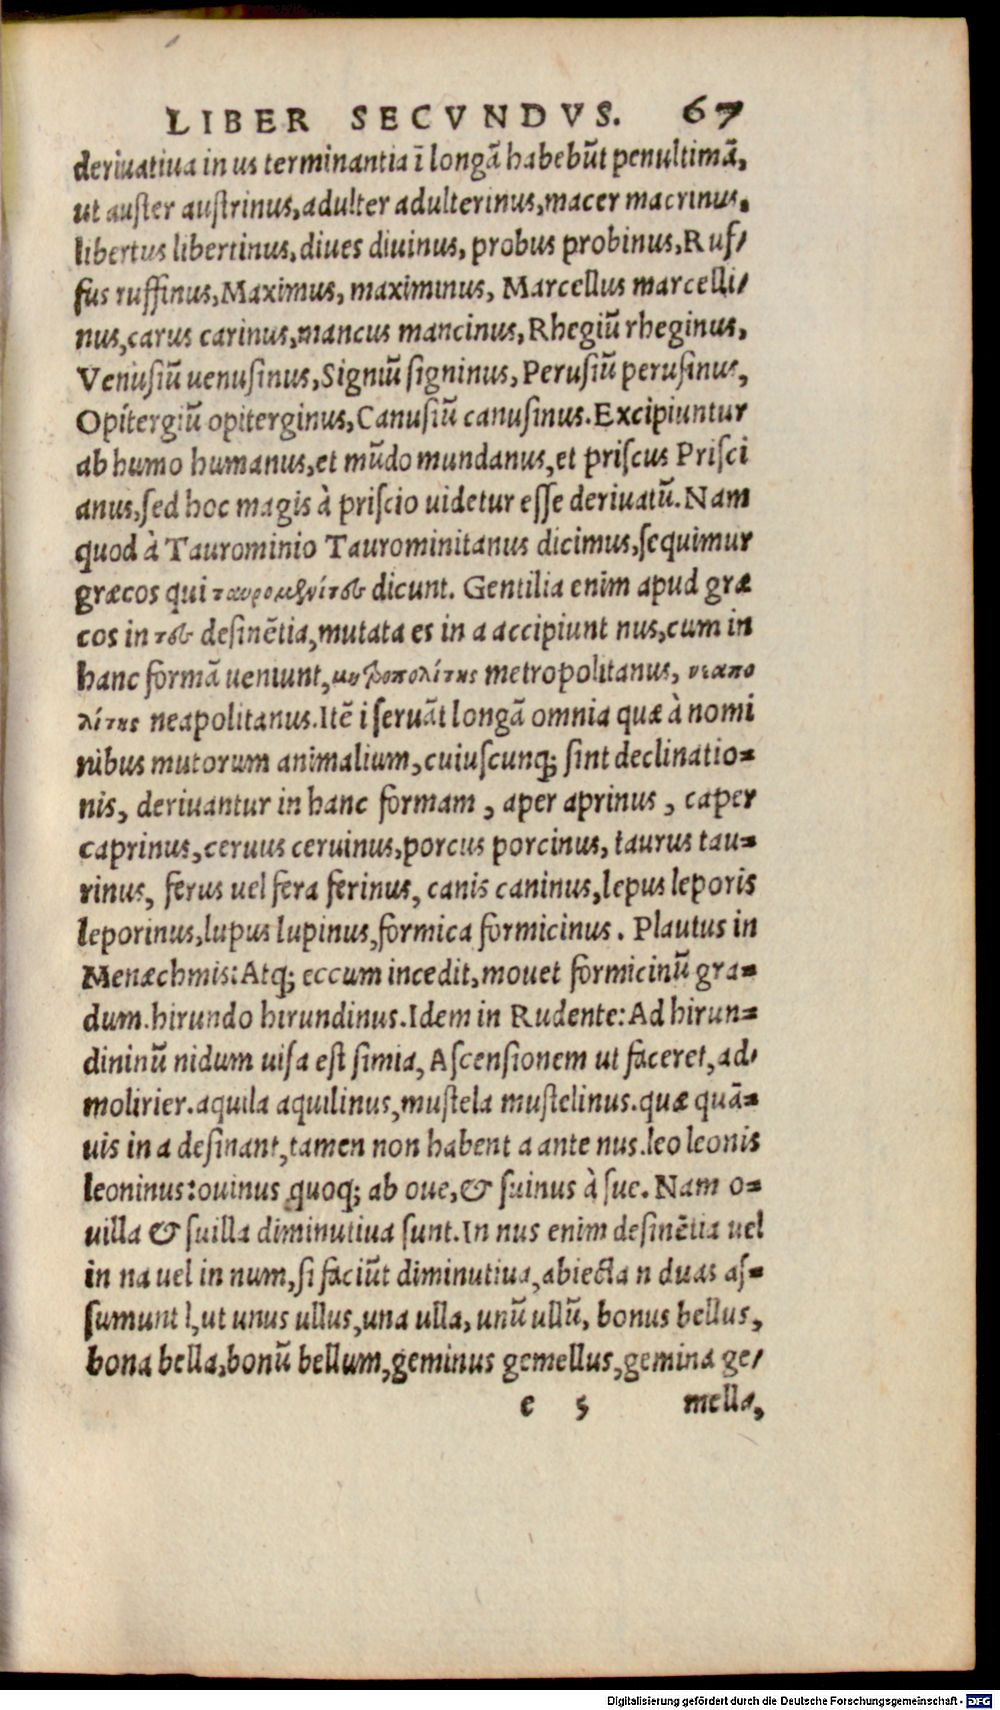 LIBER SECVNDVS. 67
deriuatiua in us terminantia ī longā habebūt penultimā,
ut auſter auſtrinus, adulter adulterinus, macer macrinus.
libertus libertinus, diues diuinus, probus probinus, Ruf/
fus ruffinus, Maximus, maximinus, Marcellus marcelli/
nus, carus carinus, mancus mancinus, Rhegiū rheginus,
Venusiū uenusinus, Signiū signinus, Perusiū perusinus,
Opitergiū opiterginus, Canusiū canuſinus. Excipiuntur
ab humo humanus, et mūdo mundanus, et priſcus Priſci
anus, ſed hoc magis à priſcio uidetur eſſe deriuatū. Nam
quod à Taurominio Taurominitanus dicimus, ſequimur
græcos qui dicunt. Gentilia enim apud græ
cos in της deſinētia, mutata es in a accipiunt nus, cum in
hanc formā ueniunt, μητροπολίτης metropolitanus, νεαπο
λίτης neapolitanus. Itē i ſeruāt longā omnia quæ à nomi
nibus mutorum animalium, cuiuſcunq; ſint declinatio-
nis, deriuantur in hanc formam, aper aprinus, caper
caprinus, ceruus ceruinus, porcus porcinus, taurus tau-
rinus, ferus uel fera ferinus, canis caninus, lepus leporis
leporinus, lupus lupinus, formica formicinus. Plautus in
Menæchmis: Atq; eccum incedit, mouet formicinū gra-
dum. hirundo hirundinus. Idem in Rudente: Ad hirun-
dininū nidum uiſa eſt ſimia, Aſcenſionem ut faceret, ad/
molirier. aquila aquilinus, muſtela muſtelinus. quæ quā-
uis in a deſinant, tamen non habent a ante nus. leo leonis
leoninus: ouinus quoq; ab oue, & ſuinus à ſue. Nam o-
uilla & ſuilla diminutiua ſunt. In nus enim deſinētia uel
in na uel in num, ſi faciūt diminutiua, abiecta n duas aſ-
ſumunt l, ut unus ullus, una ulla, unū ullū, bonus bellus,
bona bella, bonū bellum, geminus gemellus, gemina ge/
e 5 mella,
Digitalisierung gefördert durch die Deutsche Forschungsgemeinschaft - DFG